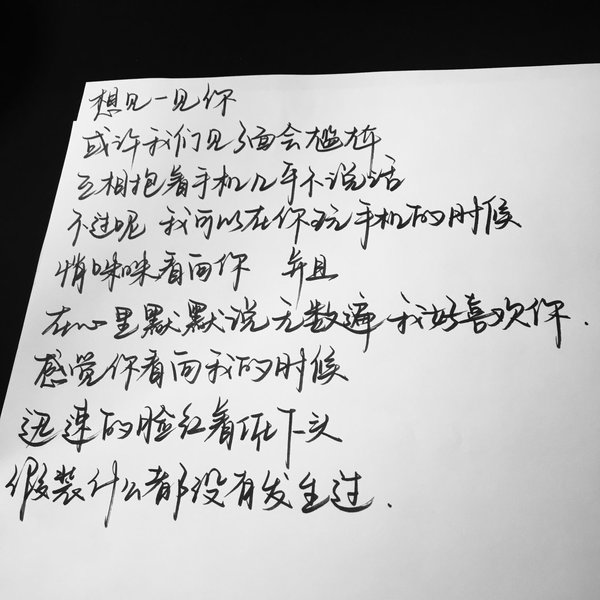 想见一见你
或许我们见了面会尴尬
互相抱着手机几乎不说话
不过呢 我可以在你玩手机的时候
悄咪咪看向你 并且
在心里默默说无数遍我好喜欢你.
感觉你看向我的时候
迅速的脸红着低下头
假装什么都没有发生过.